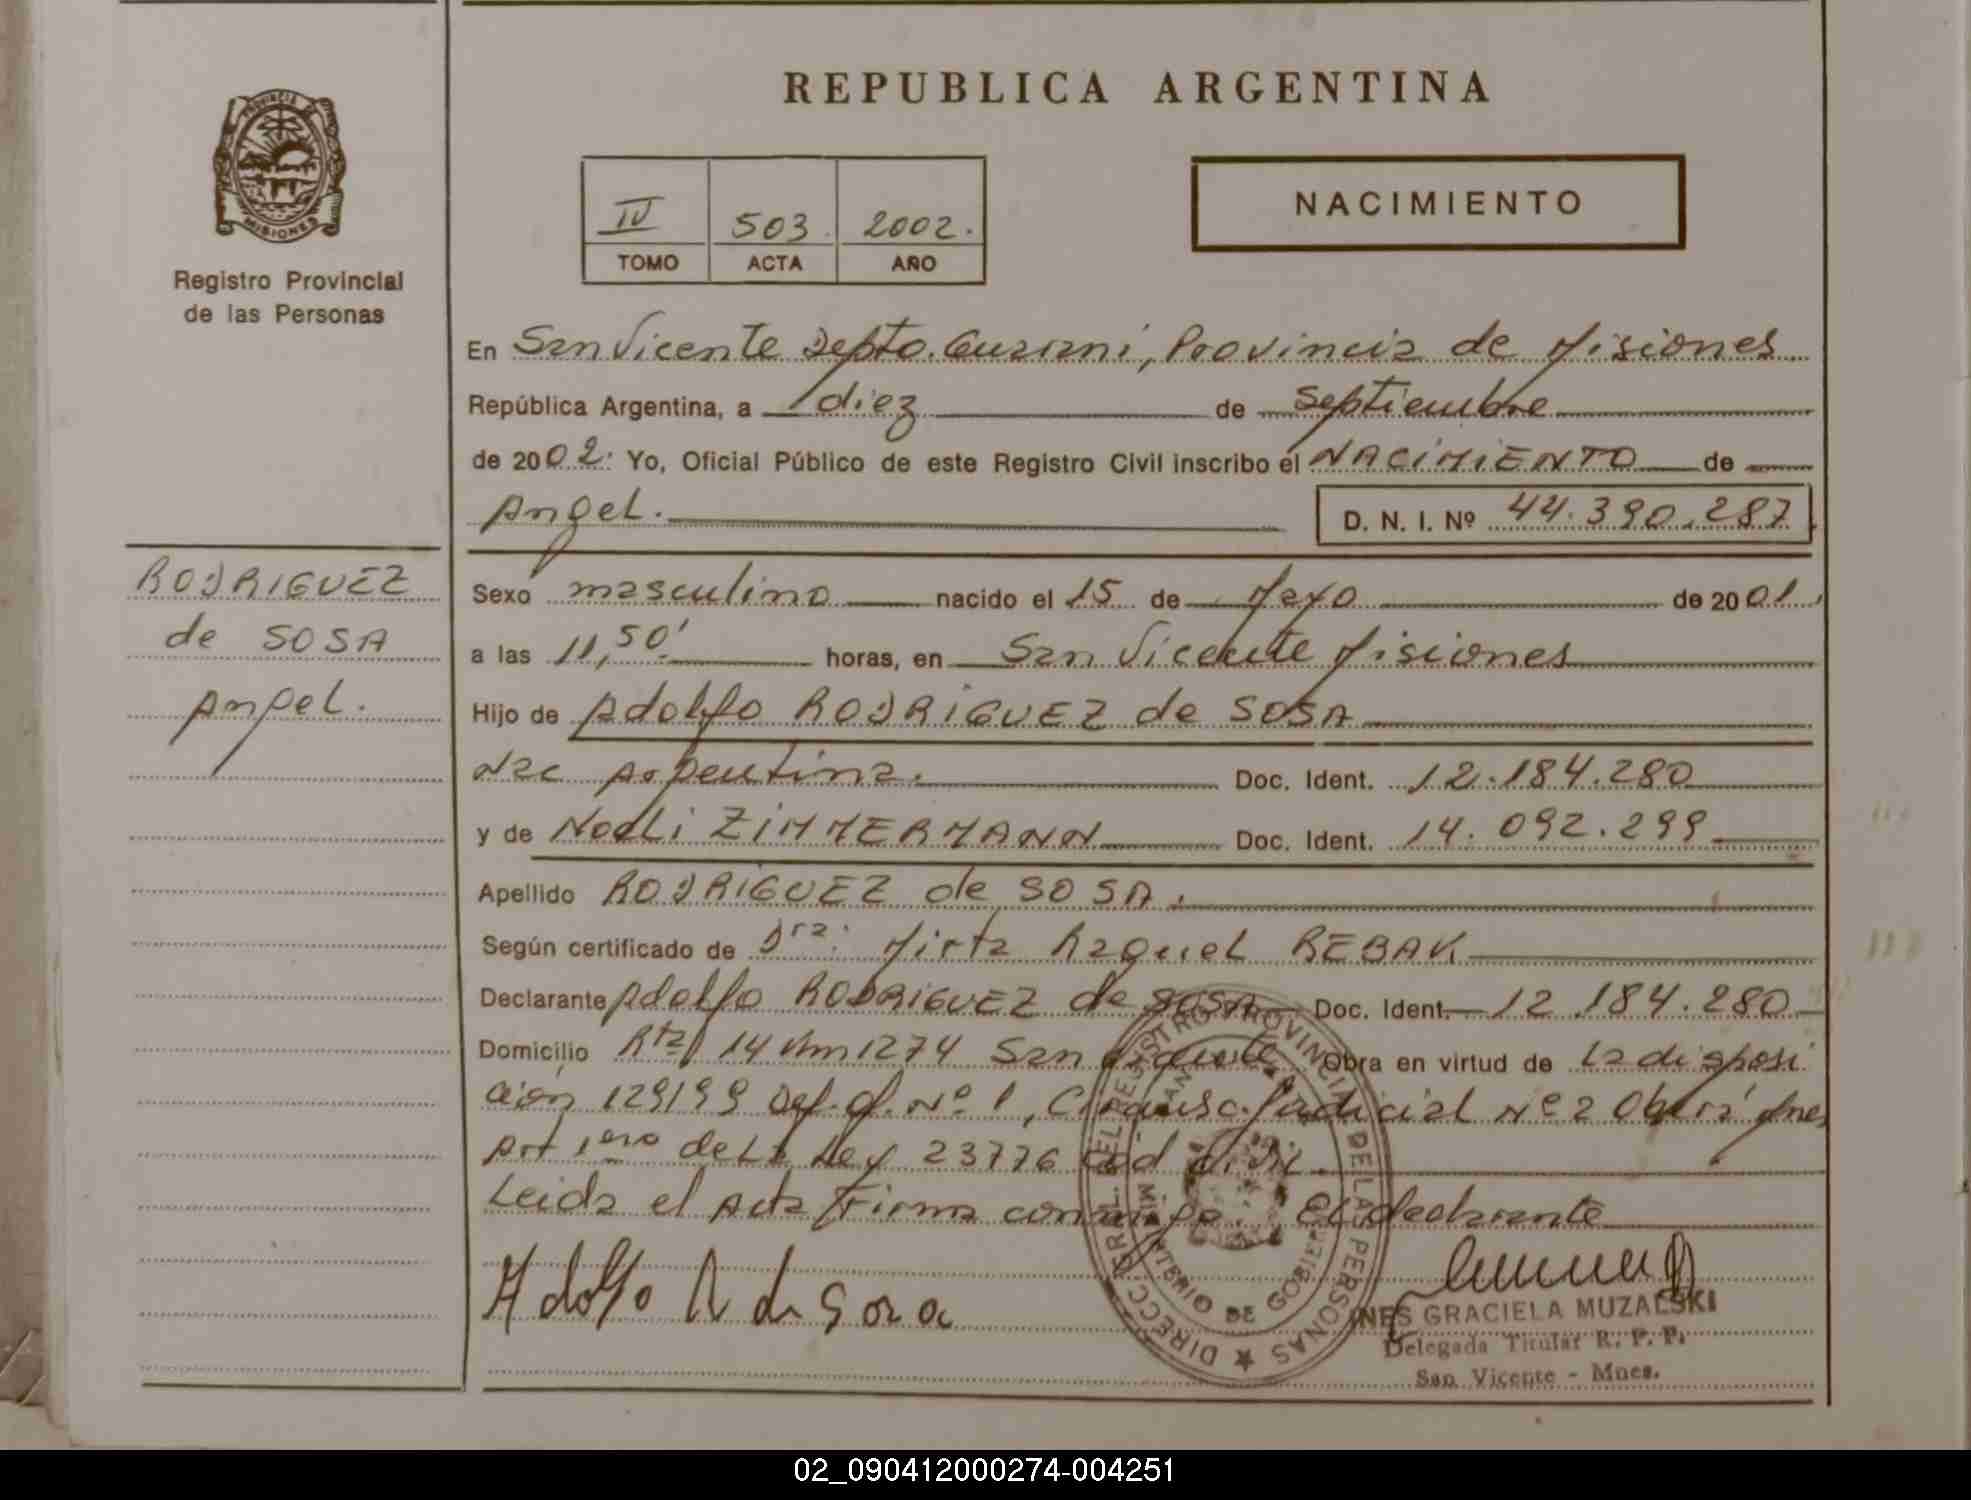 REPUBLICA ARGENTINA
PROVINCIA DE
MISIONES
Registro Provincial
de las Personas
IV 503. 2002.
TOMO ACTA AÑO
NACIMIENTO
En San Vicente Depto. Guarani, Provincia de Misiones
República Argentina, a diez de Septiembre
de 2002. Yo, Oficial Público de este Registro Civil inscribo el NACIMIENTO de
Angel. D. N. I. Nº 44.390.287
RODRIGUEZ
de SOSA
Angel.
Sexo masculino nacido el 15 de Mayo de 2001
a las 11,50' horas, en San Vicente Misiones
Hijo de Adolfo RODRIGUEZ de SOSA
Nac Argentina. Doc. Ident. 12.184.280
y de Noeli ZIMMERMANN Doc. Ident. 14.092.299
Apellido RODRIGUEZ de SOSA.
Según certificado de Dra. Mirta Raquel REBAK
Declarante Adolfo RODRIGUEZ de SOSA Doc. Ident. 12.184.280
Domicilio Rta 14 Km 1274 San Vicente Obra en virtud de la disposi
ción 129/99 Def. Of. Nº 1, Circunsc. Judicial Nº 2 Oberá Mnes
Art 1ero de la Ley 23776
Leida el Acta Firma conmigo. El declarante
Adolfo R de Sosa
DIRECC. GRAL. DEL REGISTRO PROVINCIAL DE LAS PERSONAS
MINISTERIO DE GOBIERNO
INES GRACIELA MUZALSKI
Delegada Titular R. P. P.
San Vicente - Mnes.
02_090412000274-004251